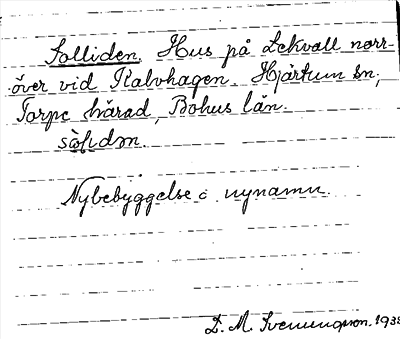 Solliden. Hus på Lekvall norr-
över vid Kalvhagen. Hjärtum sn,
Torpe härad, Bohus län.
Nybebyggelse o. nynamn.
D. M. Svenungsson. 1938